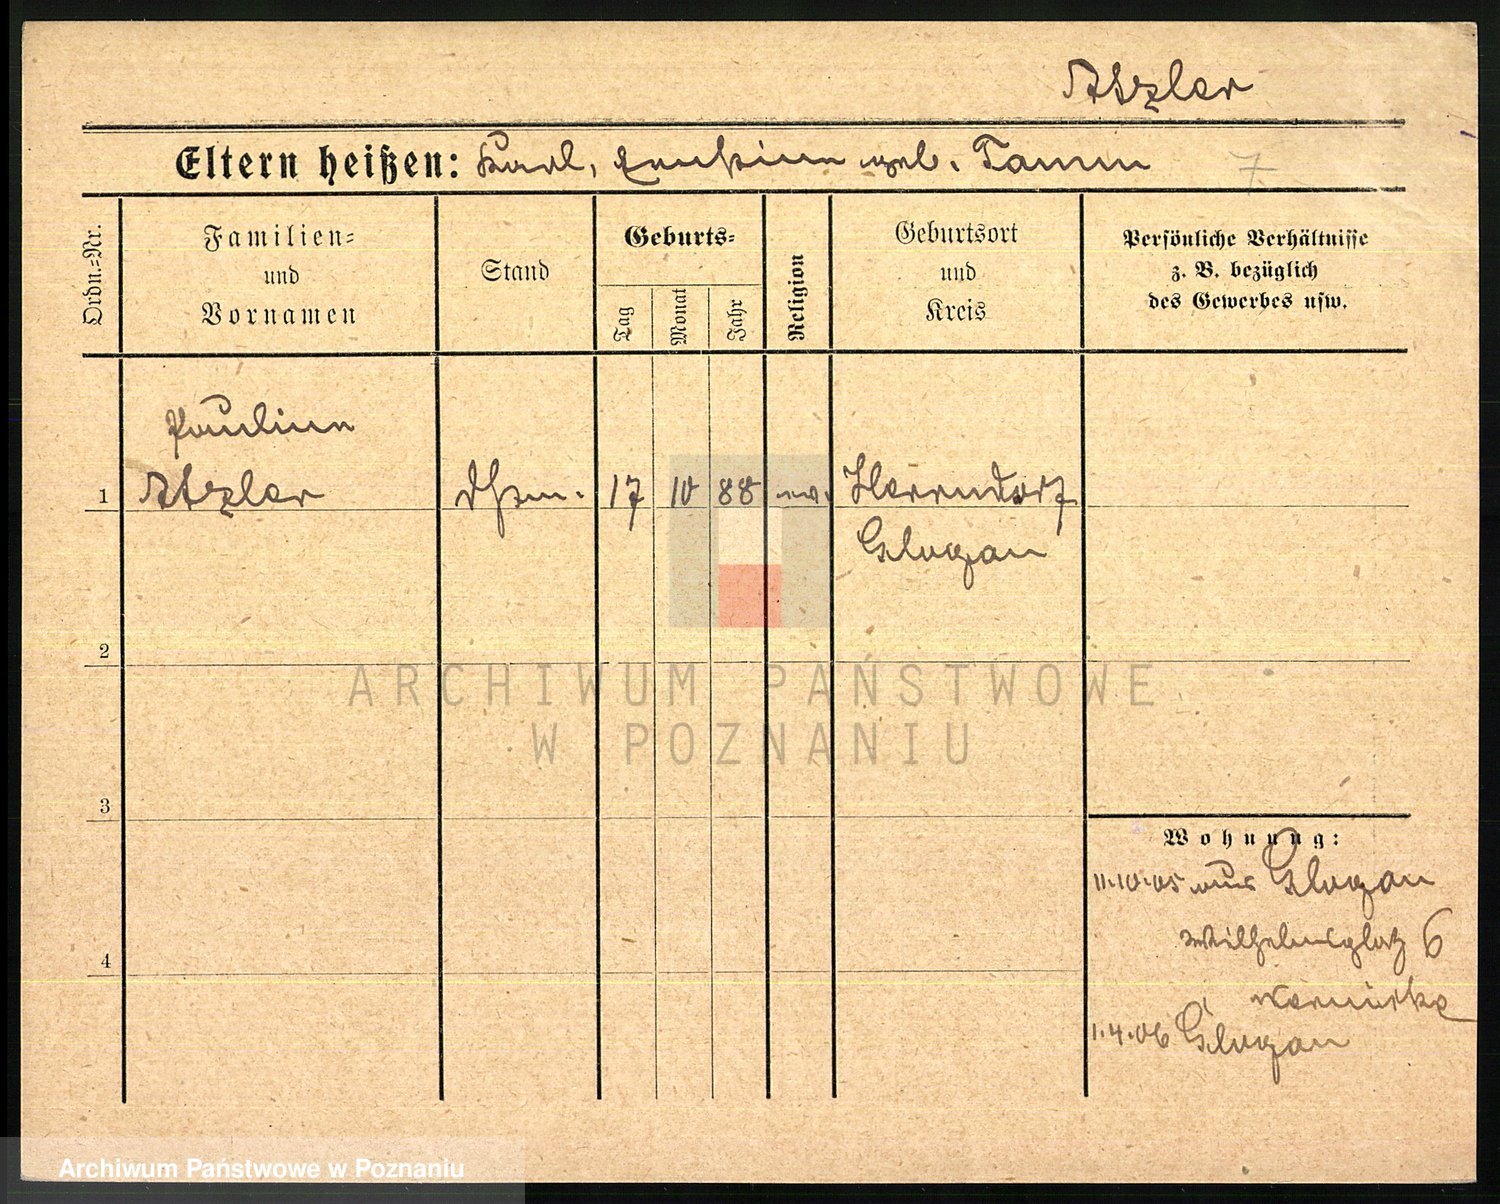 Atzler
Eltern heißen: Karl, Ernstine geb. Tamm
7
Ordn.-Nr.
Familien- und Vornamen
Stand
Geburts-
Tag
Monat
Jahr
Religion
Geburtsort und Kreis
Persönliche Verhältnisse
z. B. bezüglich
des Gewerbes usw.
Pauline
1 Atzler 17 10 88 ev. Herrndorf
Glogau
2
3
4
Wohnung:
11.10.05 aus Glogau
Wilhelmsplatz 6
1.4.06 Glogau
ARCHIWUM PAŃSTWOWE
W POZNANIU
Archiwum Państwowe w Poznaniu